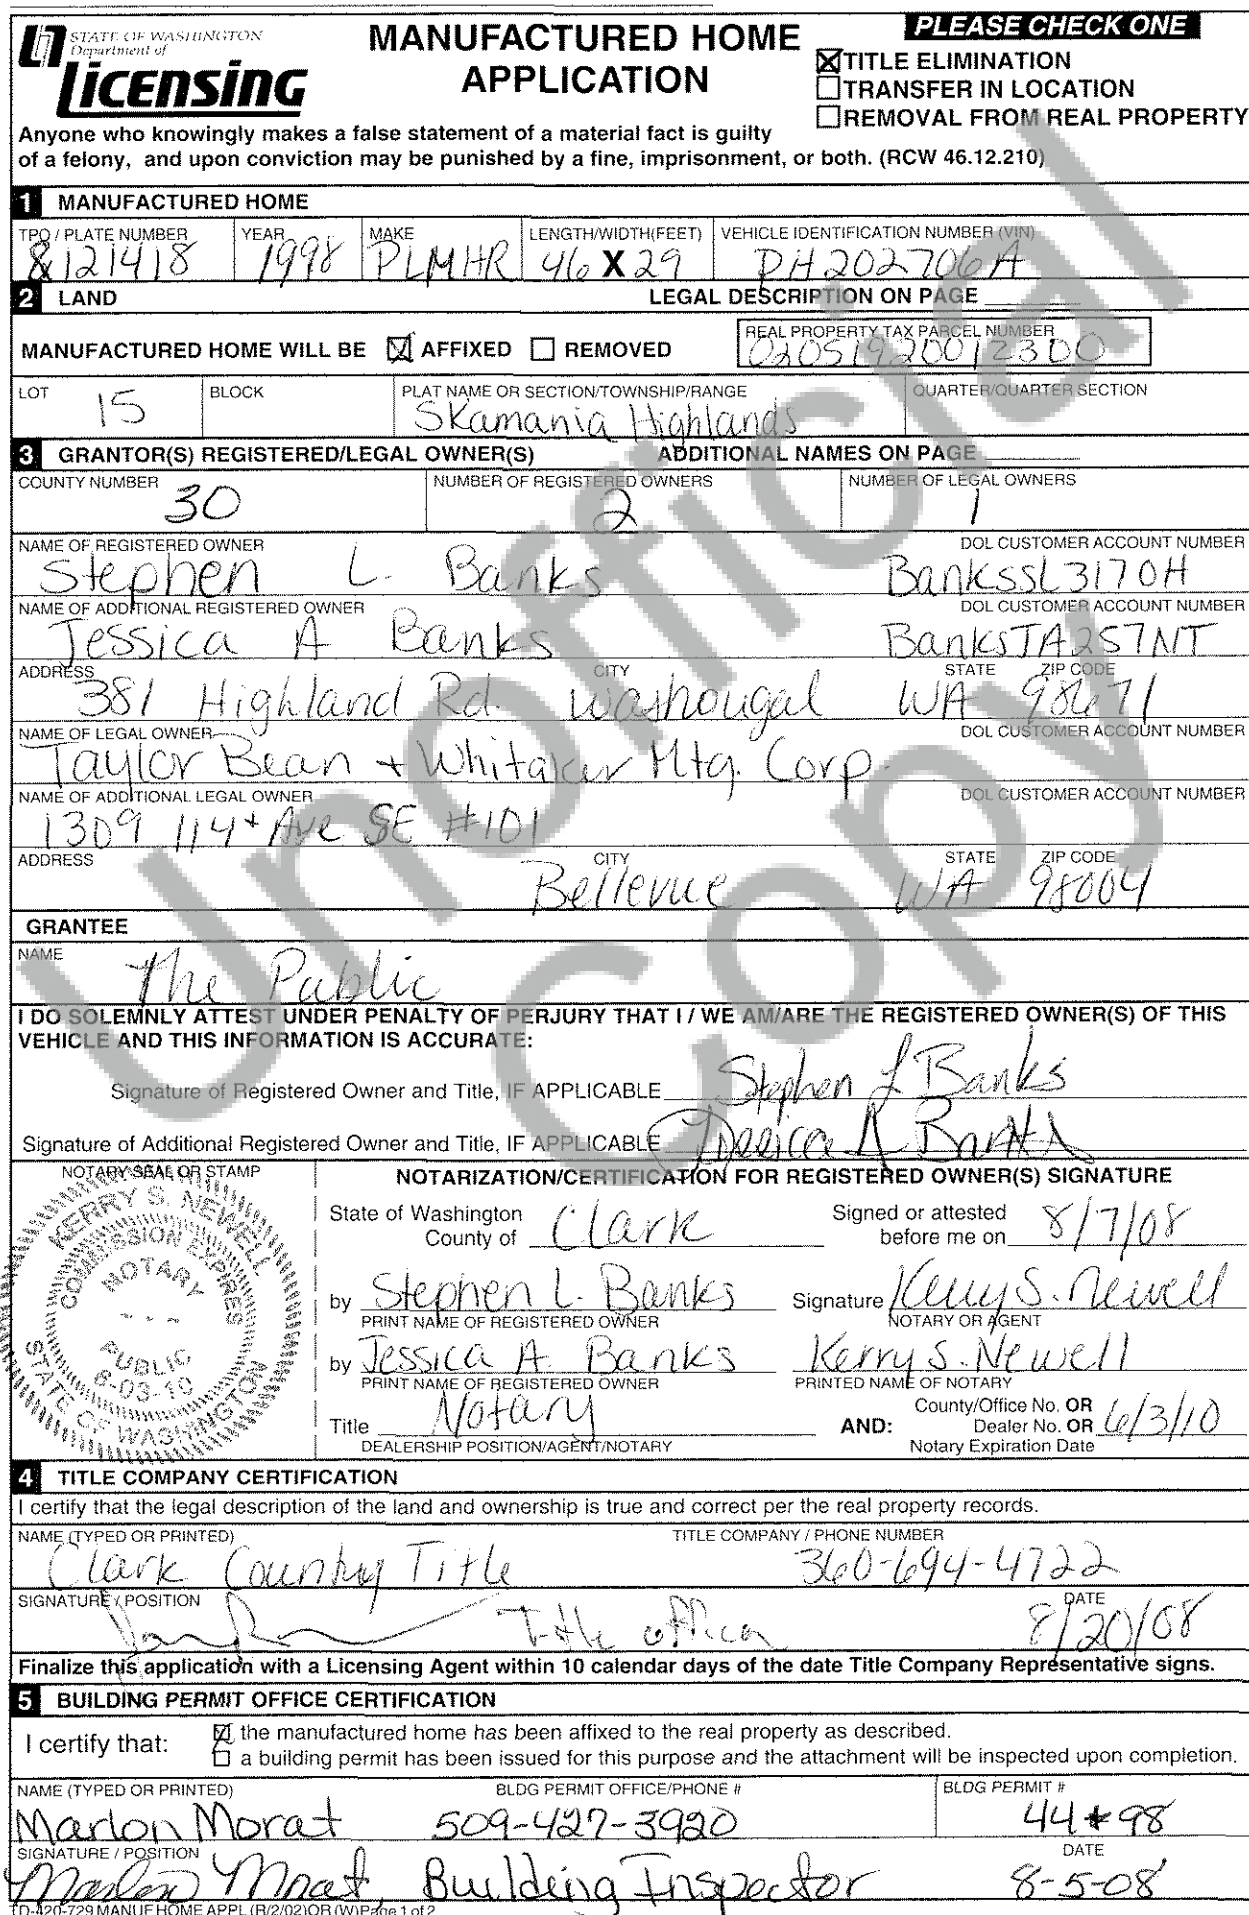 STATE OF WASHINGTON
Department of
Licensing
MANUFACTURED HOME
APPLICATION
PLEASE CHECK ONE
☒ TITLE ELIMINATION
☐ TRANSFER IN LOCATION
☐ REMOVAL FROM REAL PROPERTY
Anyone who knowingly makes a false statement of a material fact is guilty
of a felony, and upon conviction may be punished by a fine, imprisonment, or both. (RCW 46.12.210)
1 MANUFACTURED HOME
TPO / PLATE NUMBER YEAR MAKE LENGTH/WIDTH(FEET) VEHICLE IDENTIFICATION NUMBER (VIN)
&121418 1998 PLMHR 46 X 29 PH202706A
2 LAND LEGAL DESCRIPTION ON PAGE
MANUFACTURED HOME WILL BE ☒ AFFIXED ☐ REMOVED
REAL PROPERTY TAX PARCEL NUMBER
02051920012300
LOT BLOCK PLAT NAME OR SECTION/TOWNSHIP/RANGE QUARTER/QUARTER SECTION
15 Skamania Highlands
3 GRANTOR(S) REGISTERED/LEGAL OWNER(S) ADDITIONAL NAMES ON PAGE
COUNTY NUMBER NUMBER OF REGISTERED OWNERS NUMBER OF LEGAL OWNERS
30 2 1
NAME OF REGISTERED OWNER DOL CUSTOMER ACCOUNT NUMBER
Stephen L. Banks BanksSL317OH
NAME OF ADDITIONAL REGISTERED OWNER DOL CUSTOMER ACCOUNT NUMBER
Jessica A Banks BanksJA257NT
ADDRESS CITY STATE ZIP CODE
381 Highland Rd. Washougal WA 98671
NAME OF LEGAL OWNER DOL CUSTOMER ACCOUNT NUMBER
Taylor Bean + Whitaker Mtg. Corp.
NAME OF ADDITIONAL LEGAL OWNER DOL CUSTOMER ACCOUNT NUMBER
1309 114th Ave SE #101
ADDRESS CITY STATE ZIP CODE
Bellevue WA 98004
GRANTEE
NAME
The Public
I DO SOLEMNLY ATTEST UNDER PENALTY OF PERJURY THAT I / WE AM/ARE THE REGISTERED OWNER(S) OF THIS
VEHICLE AND THIS INFORMATION IS ACCURATE:
Signature of Registered Owner and Title, IF APPLICABLE Stephen L Banks
Signature of Additional Registered Owner and Title, IF APPLICABLE Jessica A Banks
NOTARY SEAL OR STAMP
KERRY S. NEWELL
COMMISSION EXPIRES
NOTARY
PUBLIC
6-03-10
STATE OF WASHINGTON
NOTARIZATION/CERTIFICATION FOR REGISTERED OWNER(S) SIGNATURE
State of Washington
County of Clark
Signed or attested
before me on 8/7/08
by Stephen L. Banks Signature Kerry S. Newell
PRINT NAME OF REGISTERED OWNER NOTARY OR AGENT
by Jessica A. Banks Kerry S. Newell
PRINT NAME OF REGISTERED OWNER PRINTED NAME OF NOTARY
Title Notary
DEALERSHIP POSITION/AGENT/NOTARY
AND: County/Office No. OR
Dealer No. OR 6/3/10
Notary Expiration Date
4 TITLE COMPANY CERTIFICATION
I certify that the legal description of the land and ownership is true and correct per the real property records.
NAME (TYPED OR PRINTED) TITLE COMPANY / PHONE NUMBER
Clark County Title 360-694-4722
SIGNATURE / POSITION DATE
Title officer 8/20/08
Finalize this application with a Licensing Agent within 10 calendar days of the date Title Company Representative signs.
5 BUILDING PERMIT OFFICE CERTIFICATION
I certify that: ☒ the manufactured home has been affixed to the real property as described.
☐ a building permit has been issued for this purpose and the attachment will be inspected upon completion.
NAME (TYPED OR PRINTED) BLDG PERMIT OFFICE/PHONE # BLDG PERMIT #
Marlon Morat 509-427-3920 44*98
SIGNATURE / POSITION DATE
Marlon Morat, Building Inspector 8-5-08
TD-420-729 MANUF HOME APPL (R/2/02)OR (W)Page 1 of 2
Unofficial
Copy